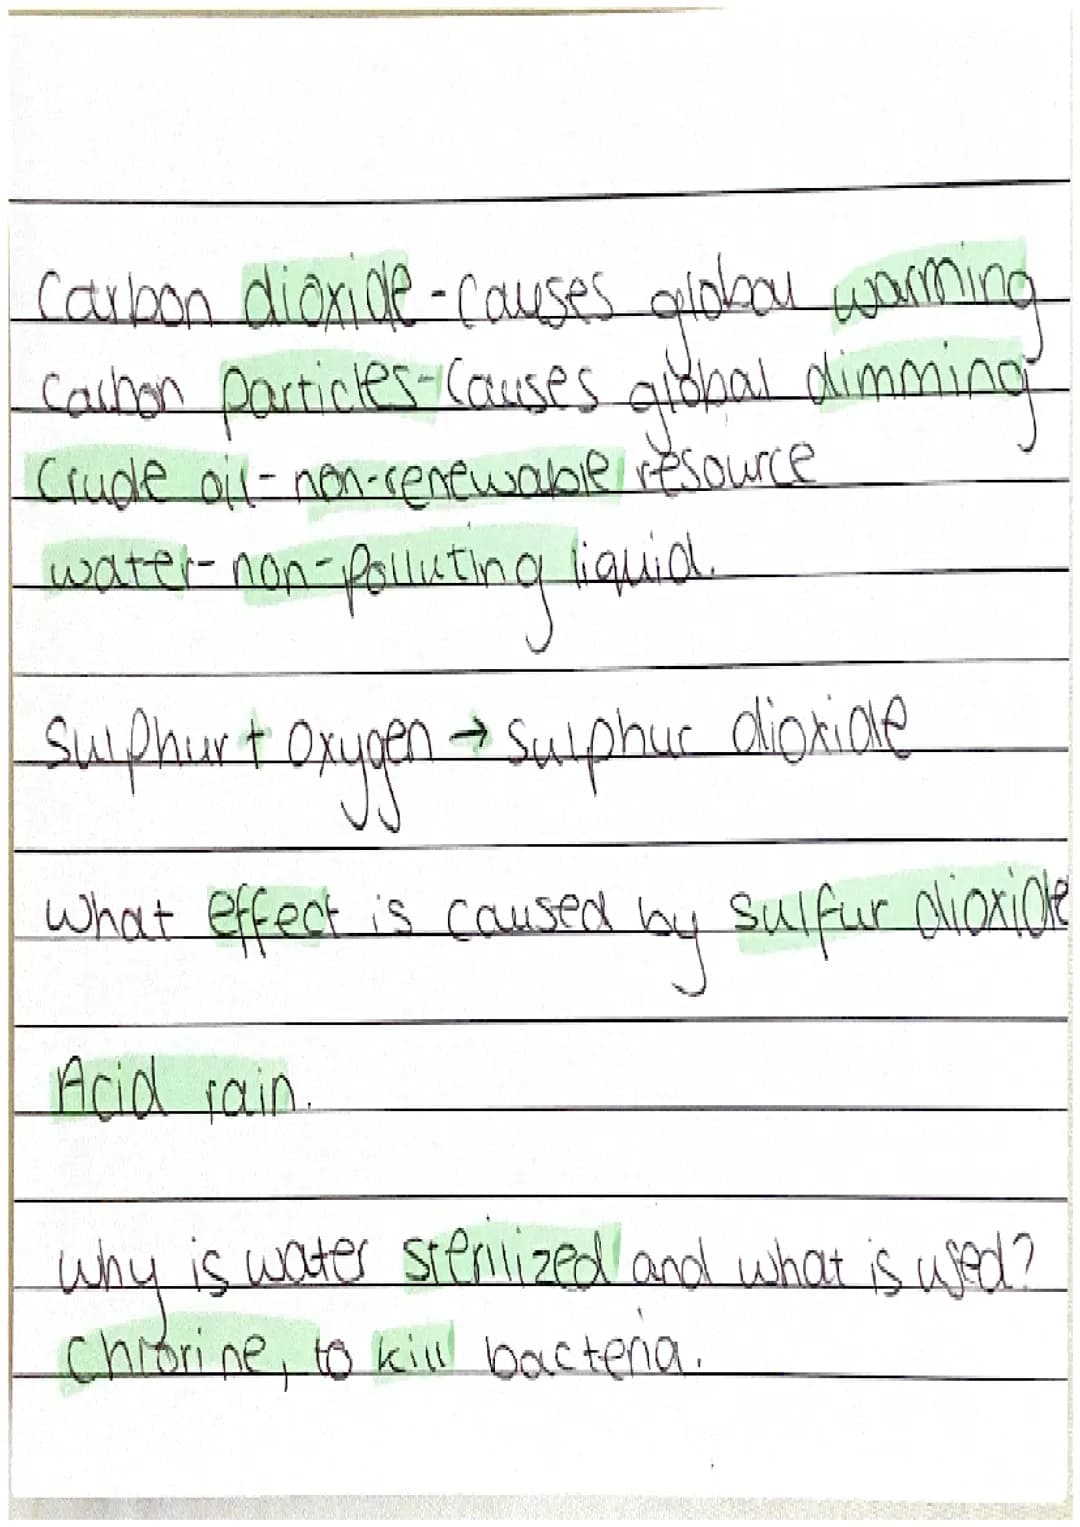 Carbon dioxide - causes global warming
Carbon particles - causes global dimming
Crude oil - non-renewable resource
water - non-polluting liquid.
Sulphur + Oxygen → Sulphur dioxide
What effect is caused by sulfur dioxide
Acid rain.
Why is water sterilized and what is used?
Chlorine, to kill bacteria.